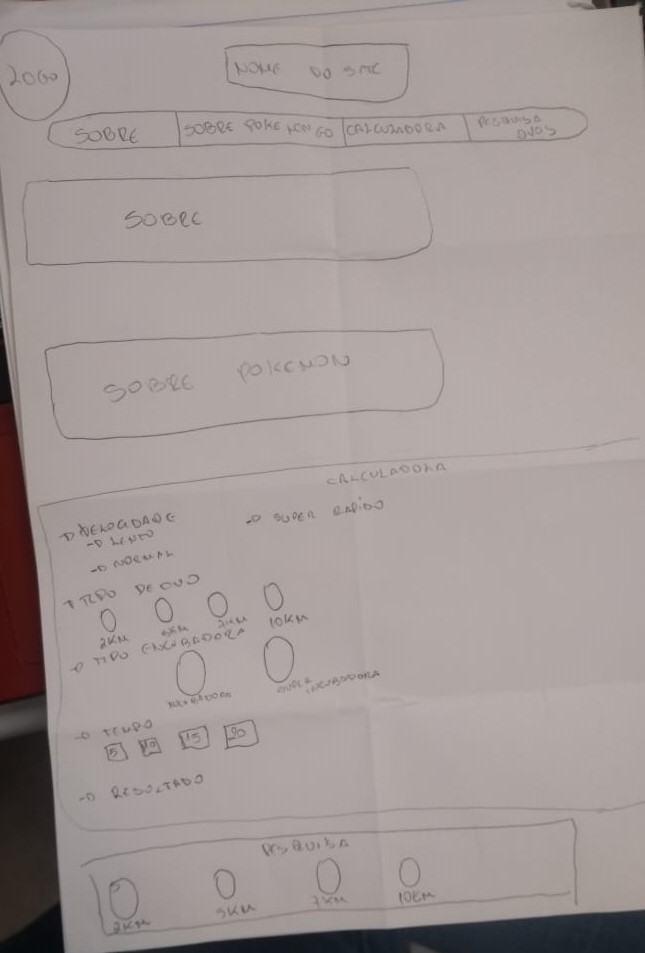 LOGO
NOME DO SITE
SOBRE
SOBRE POKEMON GO
CALCULADORA
PESQUISA
OVOS
SOBRE
SOBRE POKEMON
CALCULADORA
VELOCIDADE
LENTO
SUPER RAPIDO
NORMAL
TIPO DE OVO
2KM 5KM 7KM 10KM
TIPO ENCUBADORA
INCUBADORA
SUPER INCUBADORA
TEMPO
5 10 15 20
RESULTADO
PESQUISA
2KM 5KM 7KM 10KM